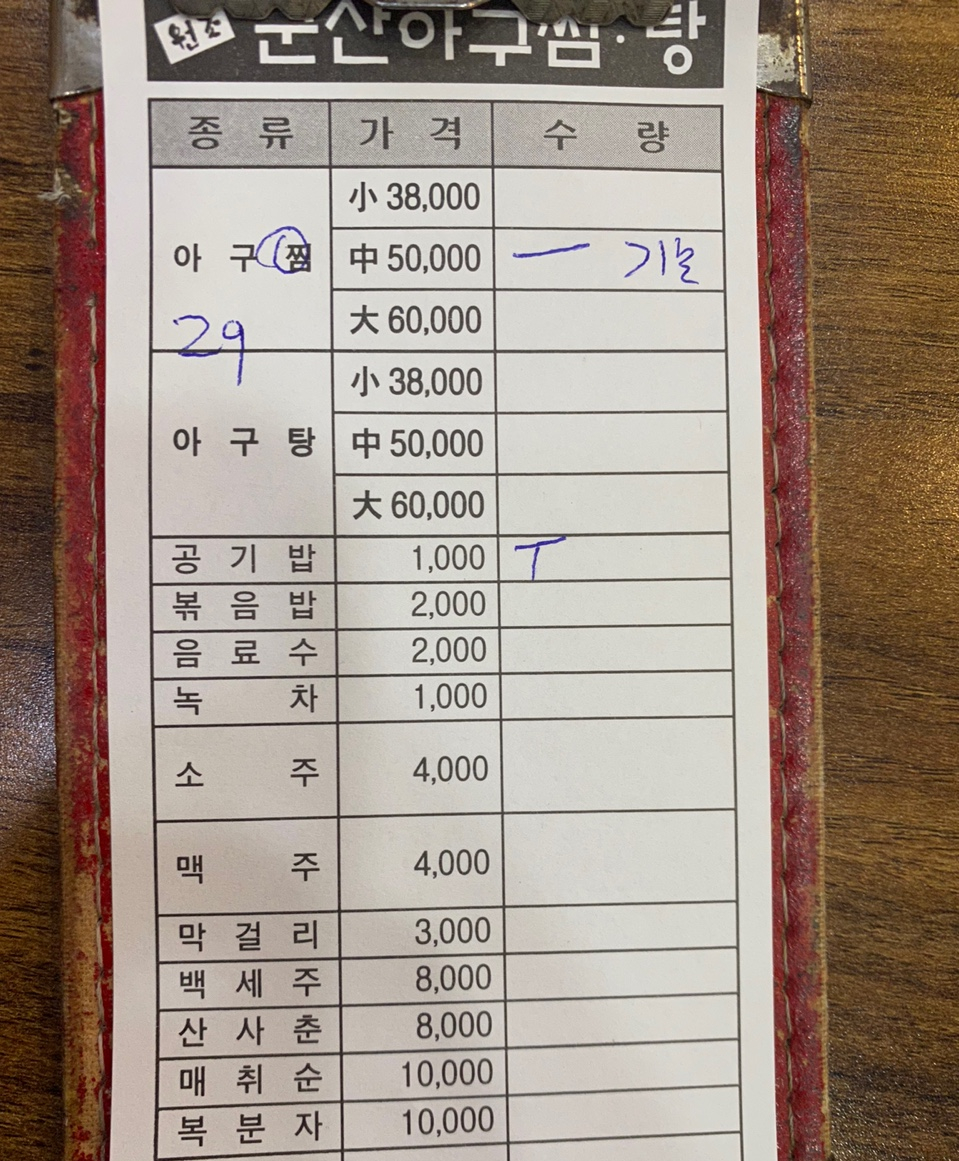 원조 군산아구찜·탕
종 류 가 격 수 량
小 38,000
아 구 찜 中 50,000 一
大 60,000
29
小 38,000
아 구 탕 中 50,000
大 60,000
공 기 밥 1,000 T
볶 음 밥 2,000
음 료 수 2,000
녹 차 1,000
소 주 4,000
맥 주 4,000
막 걸 리 3,000
백 세 주 8,000
산 사 춘 8,000
매 취 순 10,000
복 분 자 10,000